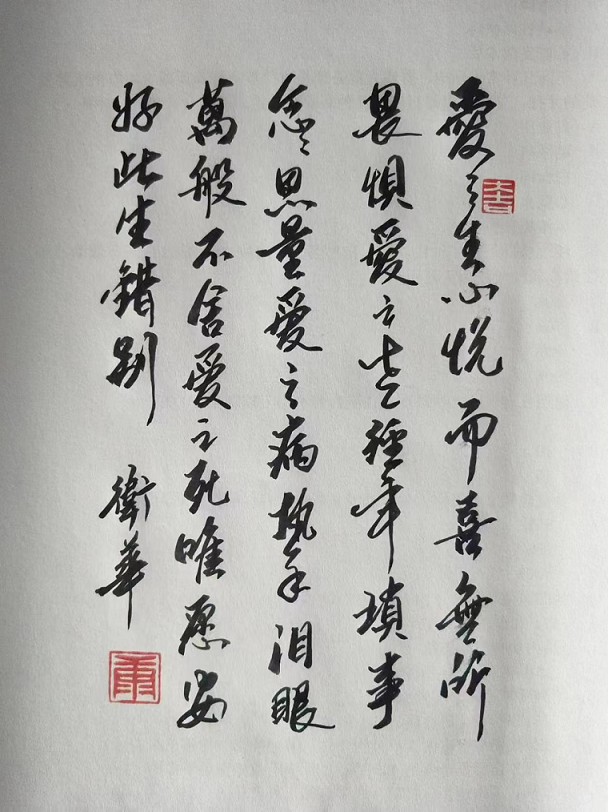 愛之生心悦而喜無所
畏惧愛之老經年瑣事
念〻思量愛之病執手泪眼
萬般不舍愛之死唯愿安
好此生錯别
衛華
大吉